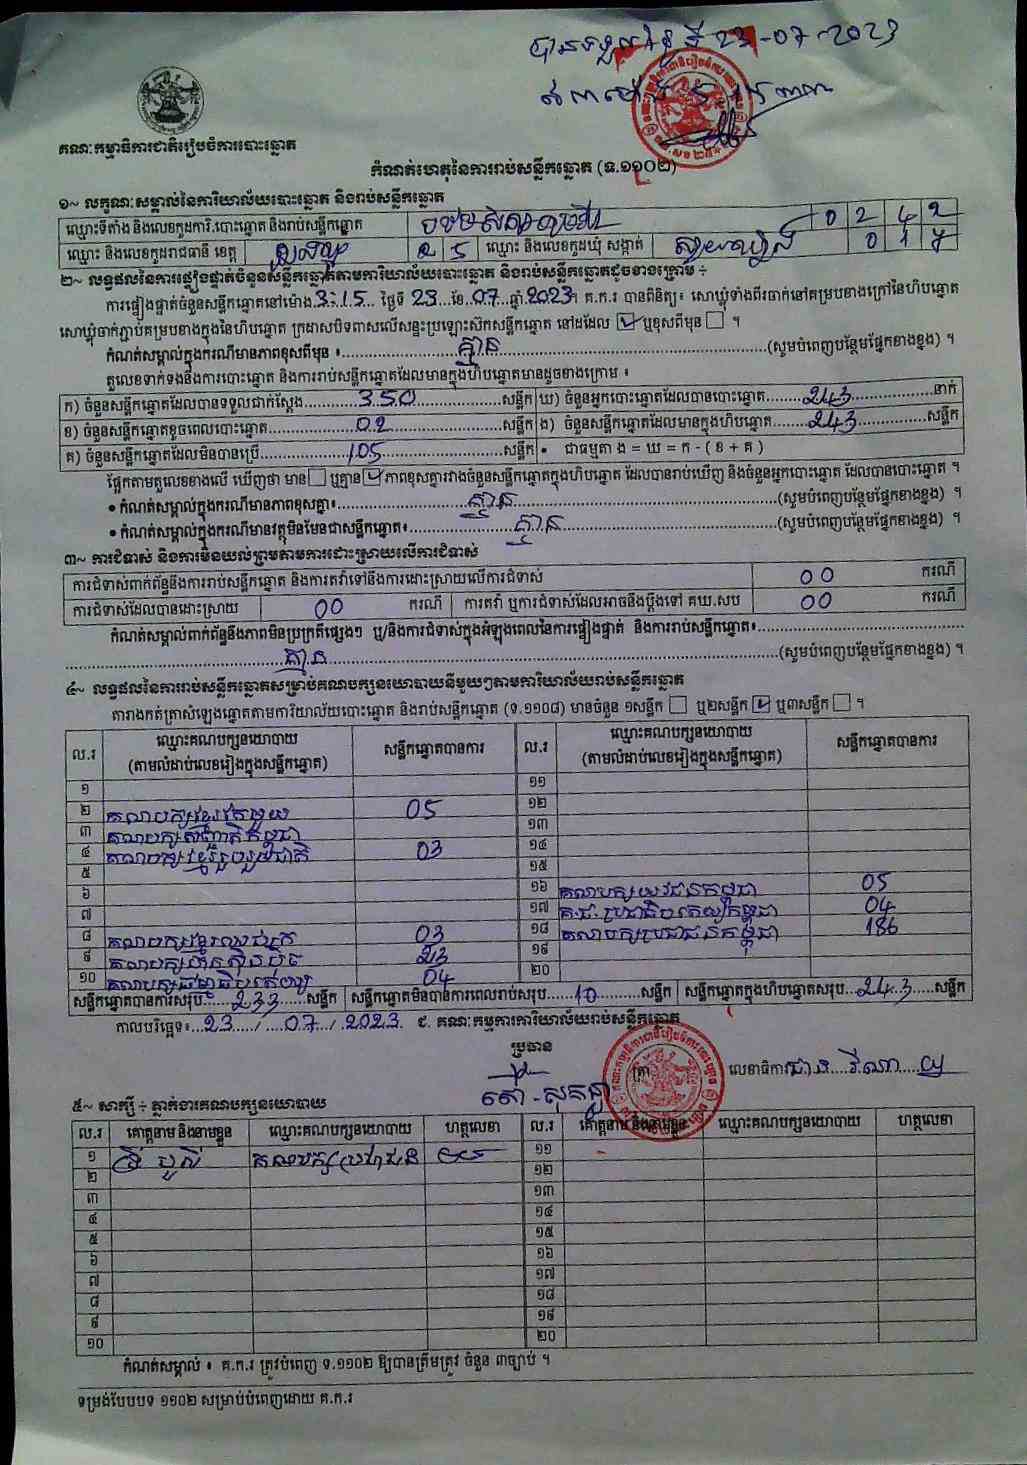 បានទទួលថ្ងៃទី 23-07-2023
គណៈកម្មាធិការជាតិរៀបចំការបោះឆ្នោត
កំណត់ហេតុនៃការរាប់សន្លឹកឆ្នោត (ទ.១១០២)
១~ លក្ខណៈសម្គាល់នៃការិយាល័យបោះឆ្នោត និងរាប់សន្លឹកឆ្នោត
ឈ្មោះទីតាំង និងលេខកូដការិ.បោះឆ្នោត និងរាប់សន្លឹកឆ្នោត 0 2 4 2
ឈ្មោះ និងលេខកូដរាជធានី ខេត្ត 2 5 ឈ្មោះ និងលេខកូដឃុំ សង្កាត់ 0 1 7
២~ លទ្ធផលនៃការផ្ទៀងផ្ទាត់ចំនួនសន្លឹកឆ្នោតតាមការិយាល័យបោះឆ្នោត និងរាប់សន្លឹកឆ្នោតដូចខាងក្រោម ÷
ការផ្ទៀងផ្ទាត់ចំនួនសន្លឹកឆ្នោតនៅម៉ោង 3:15 ថ្ងៃទី 23 ខែ 07 ឆ្នាំ 2023។ គ.ក.រ បានពិនិត្យ៖ សោឃ្លុំទាំងពីរចាក់នៅគម្របខាងក្រៅនៃហិបឆ្នោត
សោឃ្លុំចាក់ភ្ជាប់គម្របខាងក្នុងនៃហិបឆ្នោត ក្រដាសបិទពាសលើសន្ទះប្រឡោះស៊កសន្លឹកឆ្នោត នៅដដែល ☑ ឬខុសពីមុន ☐ ។
កំណត់សម្គាល់ក្នុងករណីមានភាពខុសពីមុន ៖ គ្មាន (សូមបំពេញបន្ថែមផ្នែកខាងខ្នង) ។
តួលេខទាក់ទងនឹងការបោះឆ្នោត និងការរាប់សន្លឹកឆ្នោតដែលមានក្នុងហិបឆ្នោតមានដូចខាងក្រោម ៖
ក) ចំនួនសន្លឹកឆ្នោតដែលបានទទួលជាក់ស្ដែង 350 សន្លឹក ឃ) ចំនួនអ្នកបោះឆ្នោតដែលបានបោះឆ្នោត 243 នាក់
ខ) ចំនួនសន្លឹកឆ្នោតខូចពេលបោះឆ្នោត 02 សន្លឹក ង) ចំនួនសន្លឹកឆ្នោតដែលមានក្នុងហិបឆ្នោត 243 សន្លឹក
គ) ចំនួនសន្លឹកឆ្នោតដែលមិនបានប្រើ 105 សន្លឹក • ជាធម្មតា ង = ឃ = ក - ( ខ + គ )
ផ្អែកតាមតួលេខខាងលើ ឃើញថា មាន ☐ ឬគ្មាន ☑ ភាពខុសគ្នារវាងចំនួនសន្លឹកឆ្នោតក្នុងហិបឆ្នោត ដែលបានរាប់ឃើញ និងចំនួនអ្នកបោះឆ្នោត ដែលបានបោះឆ្នោត ។
• កំណត់សម្គាល់ក្នុងករណីមានភាពខុសគ្នា៖ គ្មាន (សូមបំពេញបន្ថែមផ្នែកខាងខ្នង) ។
• កំណត់សម្គាល់ក្នុងករណីមានវត្ថុមិនមែនជាសន្លឹកឆ្នោត៖ គ្មាន (សូមបំពេញបន្ថែមផ្នែកខាងខ្នង) ។
៣~ ការជំទាស់ និងការមិនយល់ព្រមតាមការដោះស្រាយលើការជំទាស់
ការជំទាស់ពាក់ព័ន្ធនឹងការរាប់សន្លឹកឆ្នោត និងការតវ៉ាទៅនឹងការដោះស្រាយលើការជំទាស់ 00 ករណី
ការជំទាស់ដែលបានដោះស្រាយ 00 ករណី ការតវ៉ា ឬការជំទាស់ដែលអាចនឹងប្តឹងទៅ គឃ.សប 00 ករណី
កំណត់សម្គាល់ពាក់ព័ន្ធនឹងភាពមិនប្រក្រតីផ្សេងៗ ឬ/និងការជំទាស់ក្នុងអំឡុងពេលនៃការផ្ទៀងផ្ទាត់ និងការរាប់សន្លឹកឆ្នោត៖
គ្មាន (សូមបំពេញបន្ថែមផ្នែកខាងខ្នង) ។
៤~ លទ្ធផលនៃការរាប់សន្លឹកឆ្នោតសម្រាប់គណបក្សនយោបាយនីមួយៗតាមការិយាល័យរាប់សន្លឹកឆ្នោត
តារាងកត់ត្រាសំឡេងឆ្នោតតាមការិយាល័យបោះឆ្នោត និងរាប់សន្លឹកឆ្នោត (ទ.១១០៨) មានចំនួន ១សន្លឹក ☐ ឬ២សន្លឹក ☑ ឬ៣សន្លឹក ☐ ។
ល.រ ឈ្មោះគណបក្សនយោបាយ (តាមលំដាប់លេខរៀងក្នុងសន្លឹកឆ្នោត) សន្លឹកឆ្នោតបានការ ល.រ ឈ្មោះគណបក្សនយោបាយ (តាមលំដាប់លេខរៀងក្នុងសន្លឹកឆ្នោត) សន្លឹកឆ្នោតបានការ
១ ១១
២ គណបក្សខ្មែរតែមួយ 05 ១២
៣ គណបក្សសញ្ជាតិកម្ពុជា ១៣
៤ គណបក្សខ្មែររួបរួមជាតិ 03 ១៤
៥ ១៥
៦ ១៦ គណបក្សយុវជនកម្ពុជា 05
៧ ១៧ គ.ជ.ប្រជាធិបតេយ្យកម្ពុជា 04
៨ គណបក្ស 03 ១៨ គណបក្សប្រជាជនកម្ពុជា 186
៩ គណបក្សហ៊្វុនស៊ិនប៉ិច 23 ១៩
១០ គណបក្សធម្មាធិបតេយ្យ 04 ២០
សន្លឹកឆ្នោតបានការសរុប 233 សន្លឹក សន្លឹកឆ្នោតមិនបានការពេលរាប់សរុប 10 សន្លឹក សន្លឹកឆ្នោតក្នុងហិបឆ្នោតសរុប 243 សន្លឹក
កាលបរិច្ឆេទ៖ 23 / 07 / 2023. ជ. គណៈកម្មការការិយាល័យរាប់សន្លឹកឆ្នោត
ប្រធាន
ត្រា លេខាធិការ
៥~ សាក្សី ÷ ភ្នាក់ងារគណបក្សនយោបាយ
ល.រ គោត្តនាម និងនាមខ្លួន ឈ្មោះគណបក្សនយោបាយ ហត្ថលេខា ល.រ គោត្តនាម និងនាមខ្លួន ឈ្មោះគណបក្សនយោបាយ ហត្ថលេខា
១ គណបក្សប្រជាជន ១១
២ ១២
៣ ១៣
៤ ១៤
៥ ១៥
៦ ១៦
៧ ១៧
៨ ១៨
៩ ១៩
១០ ២០
កំណត់សម្គាល់ ៖ គ.ក.រ ត្រូវបំពេញ ទ.១១០២ ឱ្យបានត្រឹមត្រូវ ចំនួន ៣ច្បាប់ ។
ទម្រង់បែបបទ ១១០២ សម្រាប់បំពេញដោយ គ.ក.រ